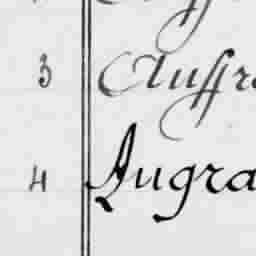 3 Auffra
4 Augra